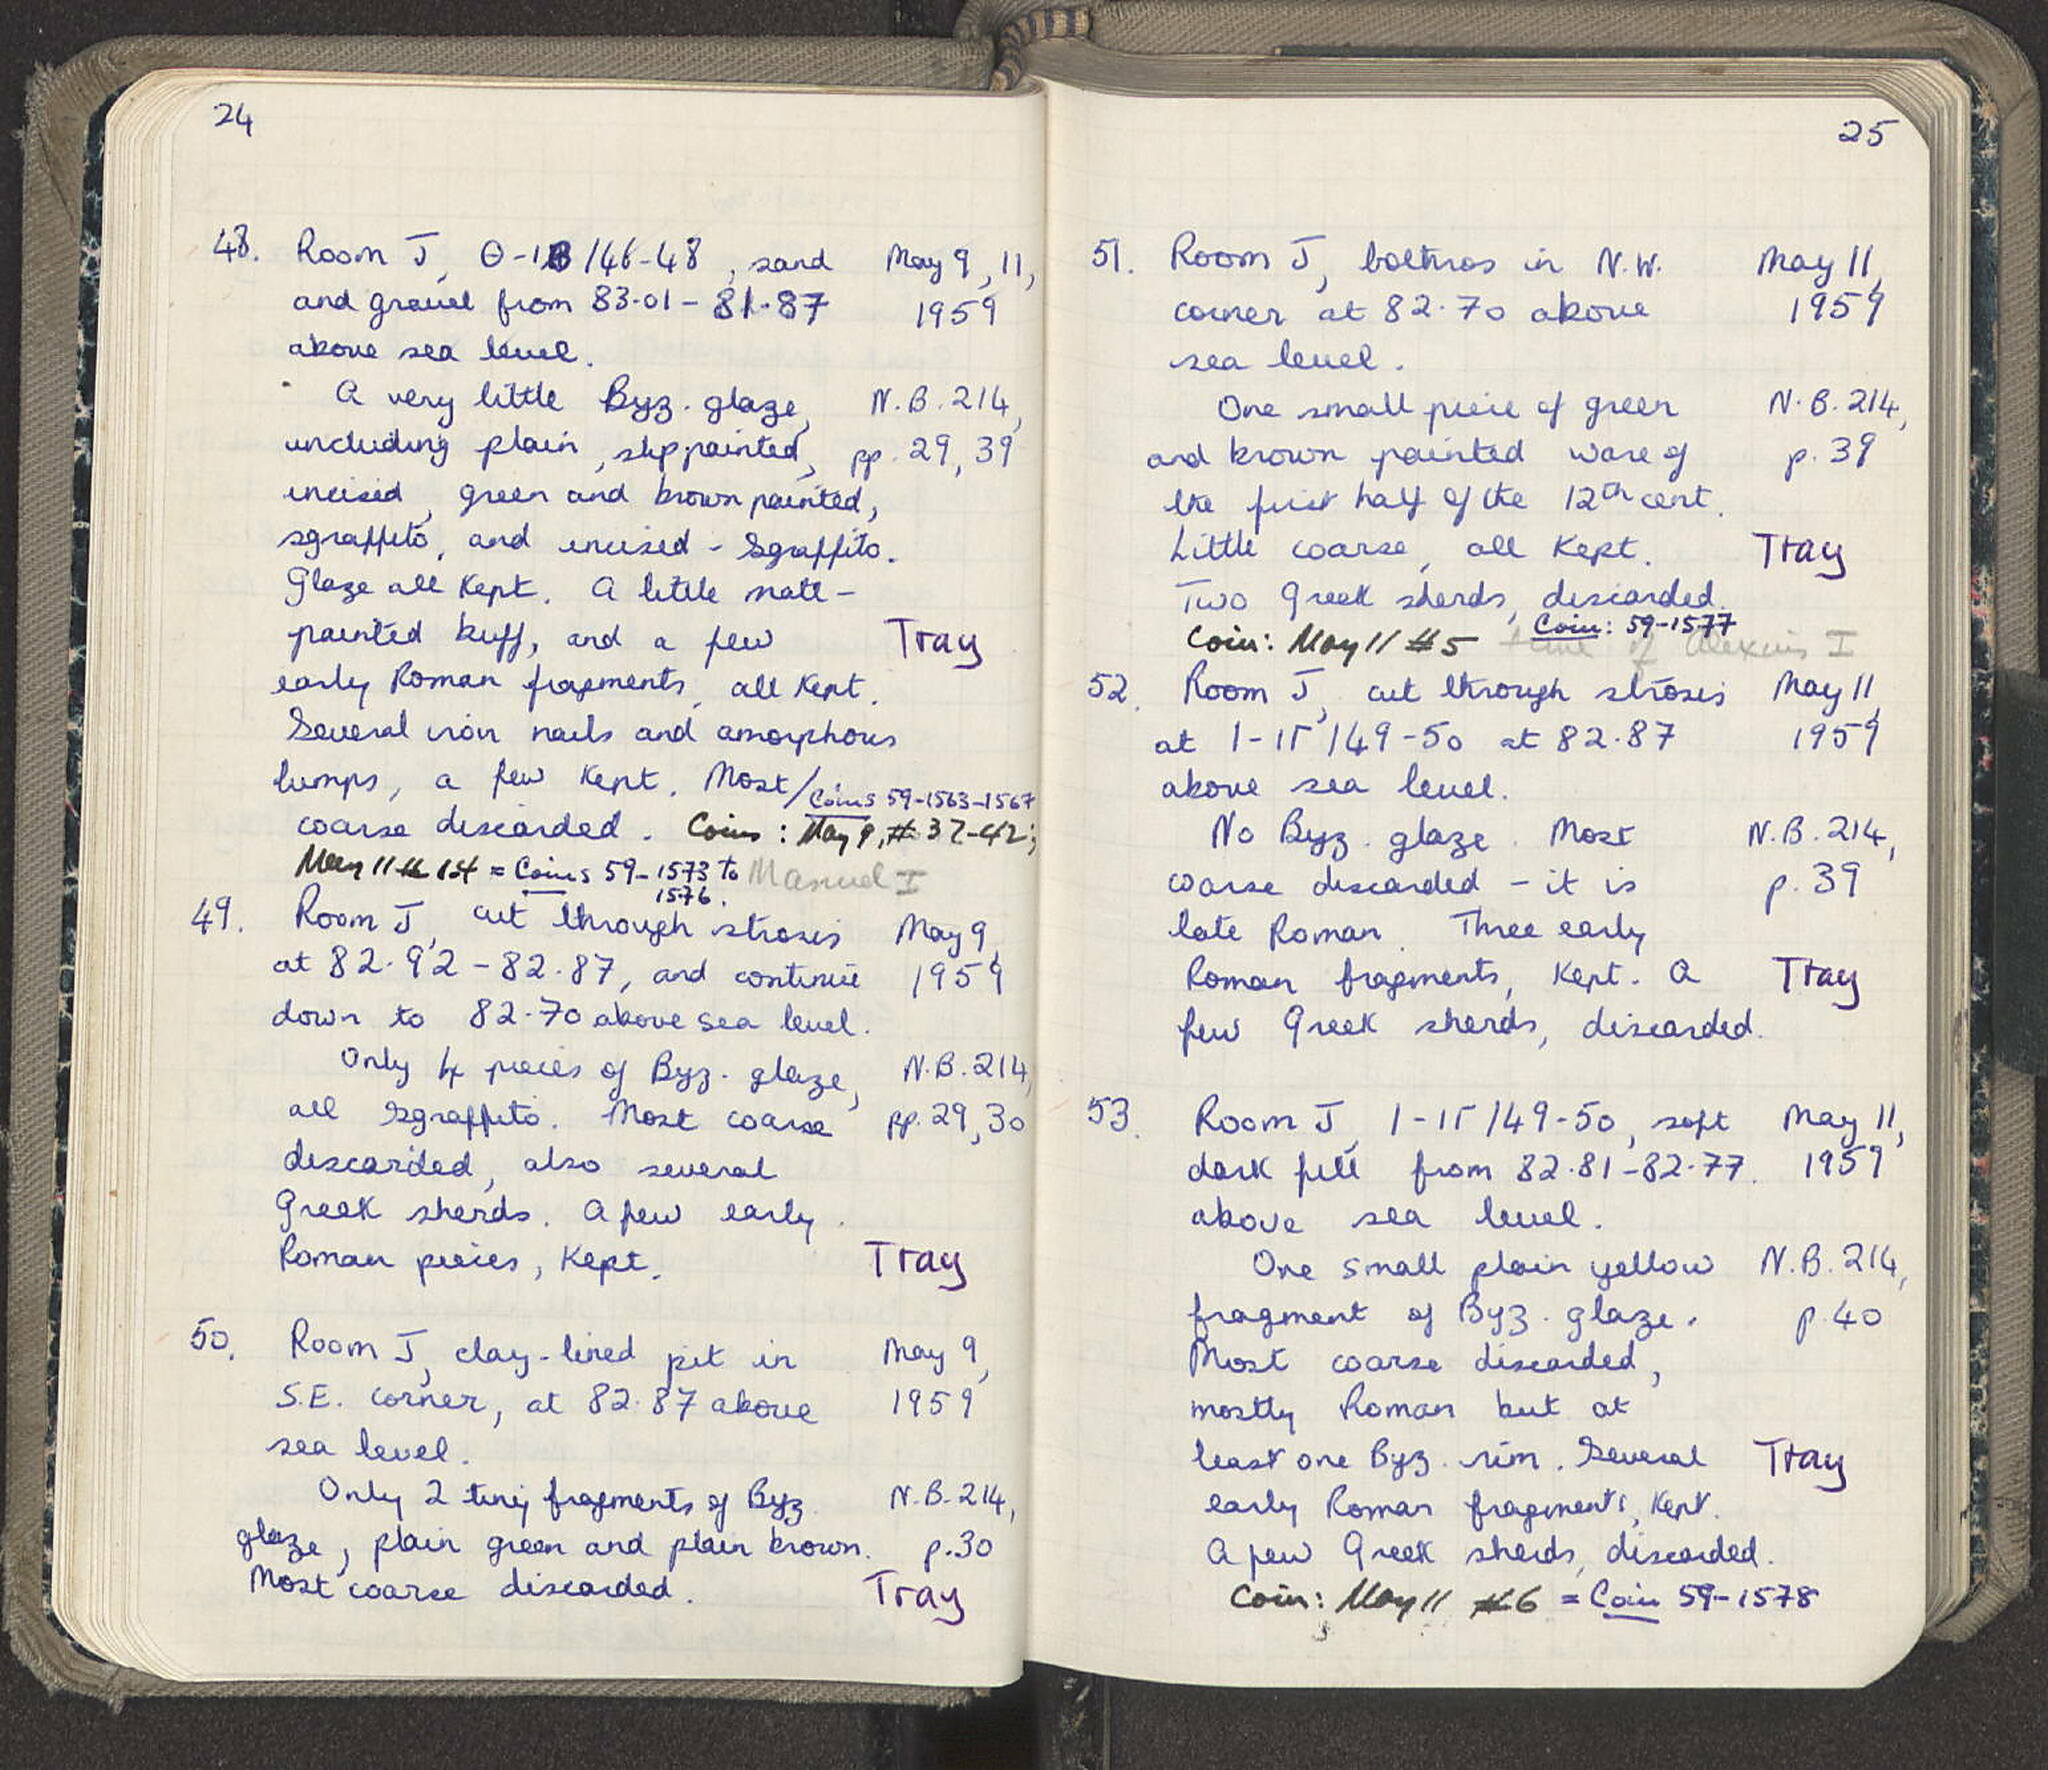 24
48. Room J, Θ-1B/46-48, sand May 9, 11,
and gravel from 83.01 - 81.87 1959
above sea level.
A very little Byz. glaze, N.B. 214,
including plain, slip painted, pp. 29, 39
incised, green and brown painted,
sgraffito, and incised - Sgraffito.
Glaze all kept. A little matt-
painted buff, and a few Tray
early Roman fragments, all kept.
Several iron nails and amorphous
lumps, a few kept. Most / Coins 59-1563-1567
coarse discarded. Coins: May 9, # 37-42;
May 11 # 1-4 = Coins 59-1573 to Manuel I
1576.
49. Room J, cut through stroses May 9,
at 82.92 - 82.87, and continue 1959
down to 82.70 above sea level.
Only 4 pieces of Byz. glaze, N.B. 214,
all Sgraffito. Most coarse pp. 29, 30
discarded, also several
Greek sherds. A few early
Roman pieces, kept. Tray
50. Room J, clay-lined pit in May 9,
S.E. corner, at 82.87 above 1959
sea level.
Only 2 tiny fragments of Byz. N.B. 214,
glaze, plain green and plain brown. p. 30
Most coarse discarded. Tray
25
51. Room J, bothros in N.W. May 11,
corner at 82.70 above 1959
sea level.
One small piece of green N.B. 214,
and brown painted ware of p. 39
the first half of the 12th cent.
Little coarse, all kept. Tray
Two Greek sherds, discarded.
Coin: 59-1577
Coin: May 11 #5 time of Alexius I
52. Room J, cut through strosis May 11,
at 1-15/49-50 at 82.87 1959
above sea level.
No Byz. glaze. Most N.B. 214,
coarse discarded - it is p. 39
late Roman. Three early
Roman fragments, kept. A Tray
few Greek sherds, discarded.
53. Room J, 1-15/49-50, soft May 11,
dark fill from 82.81-82.77. 1959
above sea level.
One small plain yellow N.B. 214,
fragment of Byz. glaze. p. 40
Most coarse discarded,
mostly Roman but at
least one Byz. rim. Several Tray
early Roman fragments, kept.
A few Greek sherds, discarded.
Coin: May 11 #6 = Coin 59-1578